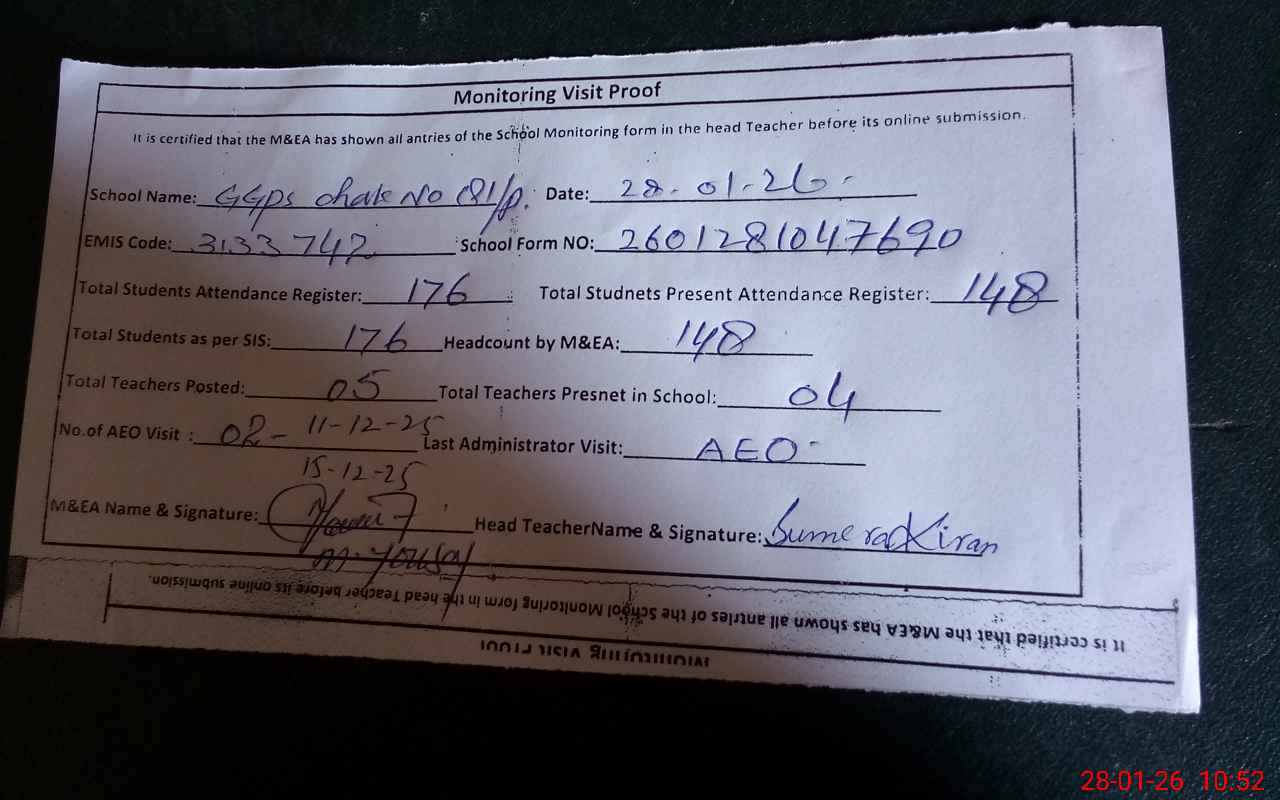 Monitoring Visit Proof
It is certified that the M&EA has shown all antries of the School Monitoring form in the head Teacher before its online submission.
School Name: GGPS chak No 181/P. Date: 28-01-26-
EMIS Code: 3133742 School Form NO: 2601281047690
Total Students Attendance Register: 176 Total Studnets Present Attendance Register: 148
Total Students as per SIS: 176 Headcount by M&EA: 148
Total Teachers Posted: 05 Total Teachers Presnet in School: 04
No.of AEO Visit : 02- 11-12-25 Last Administrator Visit: AEO-
15-12-25
M&EA Name & Signature: Head TeacherName & Signature: Sumera Kiran
M.Yousaf
It is certified that the M&EA has shown all antries of the School Monitoring form in the head Teacher before its online submission.
Monitoring Visit Proof
28-01-26 10:52